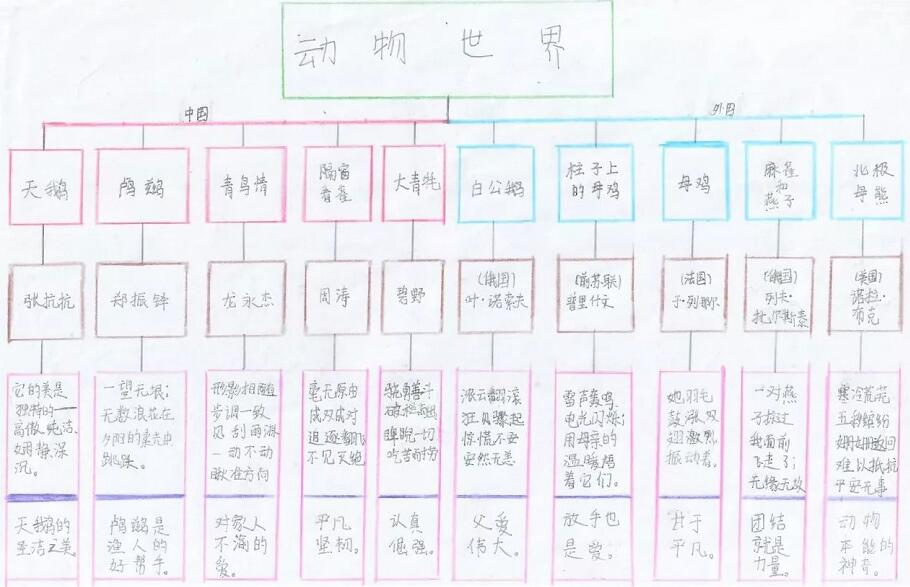 动物世界
中国
外国
天鹅
鸬鹚
青鸟情
隔窗
看雀
大青牤
白公鹅
柱子上
的母鸡
母鸡
麻雀
和
燕子
北极
母熊
张抗抗
郑振铎
龙永杰
周涛
碧野
(俄国)
叶·诺索夫
(前苏联)
普里什文
(法国)
于·列那尔
(俄国)
列夫·
托尔斯泰
(美国)
诺拉·
布克
它的美是
独特的一
高傲、纯洁、
娴静、深
沉。
一望无垠;
无数浪花在
夕阳的柔光中
跳跃。
形影相随
步调一致
风刮雨淋
一动不动
瞅准方向
毫无原由
成双成对
追逐翻飞
不见灭绝
骁勇善斗
睥睨一切
吃苦耐劳
浓云翻滚
狂风骤起
惊慌不安
安然无恙
雷声轰鸣,
电光闪烁;
用母亲的
温暖捂
着它们。
她羽毛
鼓涨双
翅激烈
振动着。
一对燕
子掠过
我面前
飞走了;
无缘无故
寒冷荒芜
五彩缤纷
姗姗返回
难以抵抗
平安无事
天鹅的
圣洁之美。
鸬鹚是
渔人的
好帮手。
对家人
不满的
爱。
平凡
坚韧。
认真
倔强。
父爱
伟大。
放手也
是爱。
甘于
平凡。
团结
就是
力量。
动物
本能的
神奇。